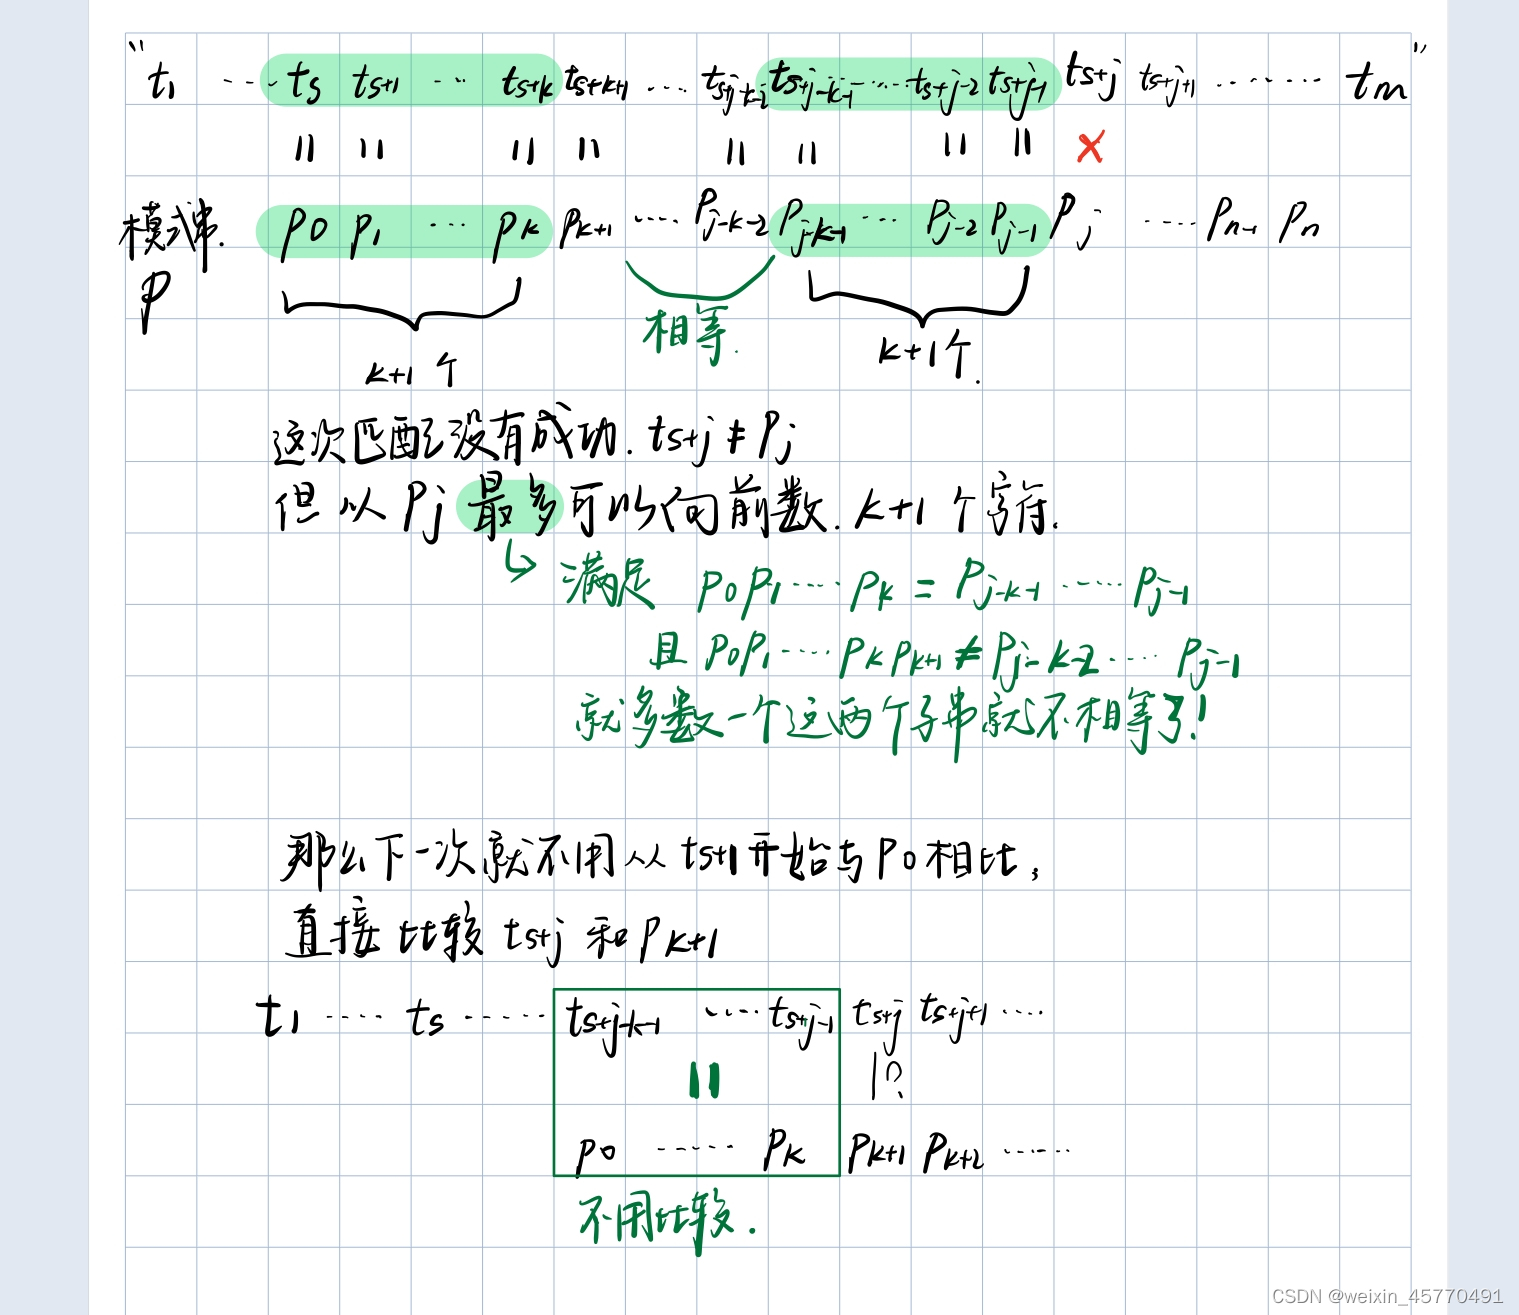 " t1 ---- ts ts+1 --- ts+k ts+k+1 ---- ts+j-k-2 ts+j-k-1 ---- ts+j-2 ts+j-1 ts+j ts+j+1 ------ tm "
|| || || || || || || || ×
模式串. p0 p1 ... pk pk+1 ..... pj-k-2 pj-k-1 ... pj-2 pj-1 pj ..... pn-1 pn
p
相等.
k+1个 k+1个.
这次匹配没有成功. ts+j ≠ pj
但以 pj 最多可以向前数. k+1 个字符.
↳ 满足 p0p1 ..... pk = pj-k-1 ...... pj-1
且 p0p1 ..... pk pk+1 ≠ pj-k-2 ..... pj-1
就多数一个这两个子串就不相等了!
那么下一次就不用从 ts+1 开始与 p0 相比,
直接比较 ts+j 和 pk+1
t1 ..... ts ....... ts+j-k-1 ..... ts+j-1 ts+j ts+j+1 .....
|| ||?
p0 ...... pk pk+1 pk+2 ......
不用比较.
CSDN @weixin_45770491